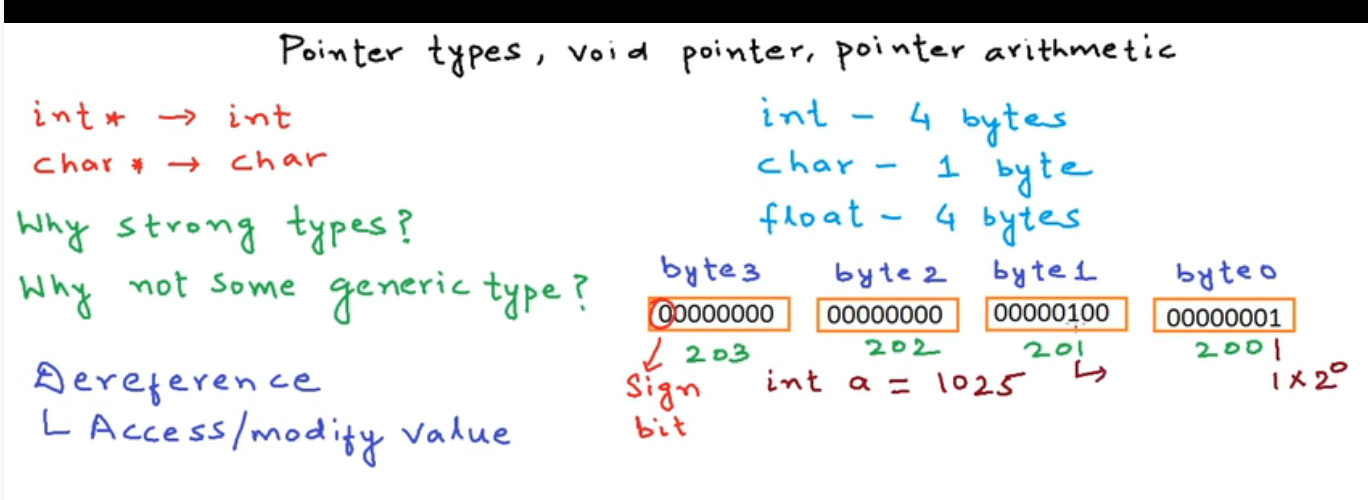 Pointer types, void pointer, pointer arithmetic
int* → int
char* → char
Why strong types?
Why not some generic type?
Dereference
└ Access/modify value
int - 4 bytes
char - 1 byte
float - 4 bytes
byte3 byte2 byte1 byte0
00000000 00000000 00000100 00000001
203 202 201 200
Sign bit
int a = 1025
1×2⁰